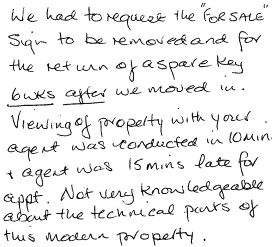 We had to request the "FOR SALE"
Sign to be removed and for
the return of a spare key
6wks after we moved in.
Viewing of property with your
agent was conducted in 10min
+ agent was 15mins late for
appt. Not very knowledgeable
about the technical parts of
this modern property.